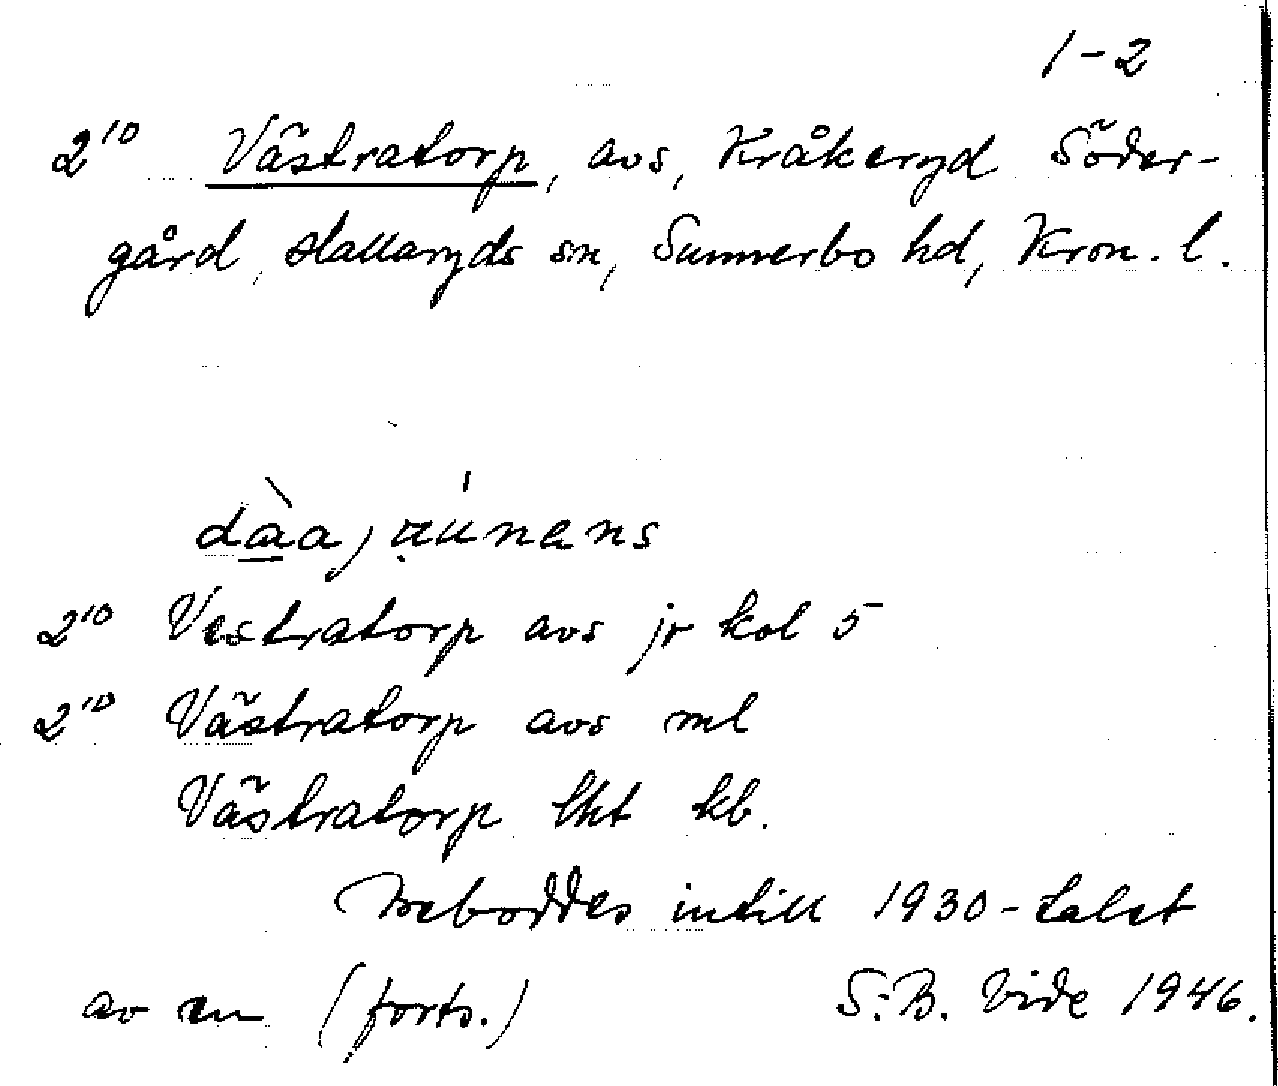 1-2
2¹⁰ Västratorp, avs, Kråkeryd Söder-
gård, Hallaryds sn, Sunnerbo hd, Kron. l.
2¹⁰ Vestratorp avs jr kol 5
2¹⁰ Västratorp avs ml
Västratorp lht kb.
Beboddes intill 1930-talet
av en (forts.) S:B. Vide 1946.